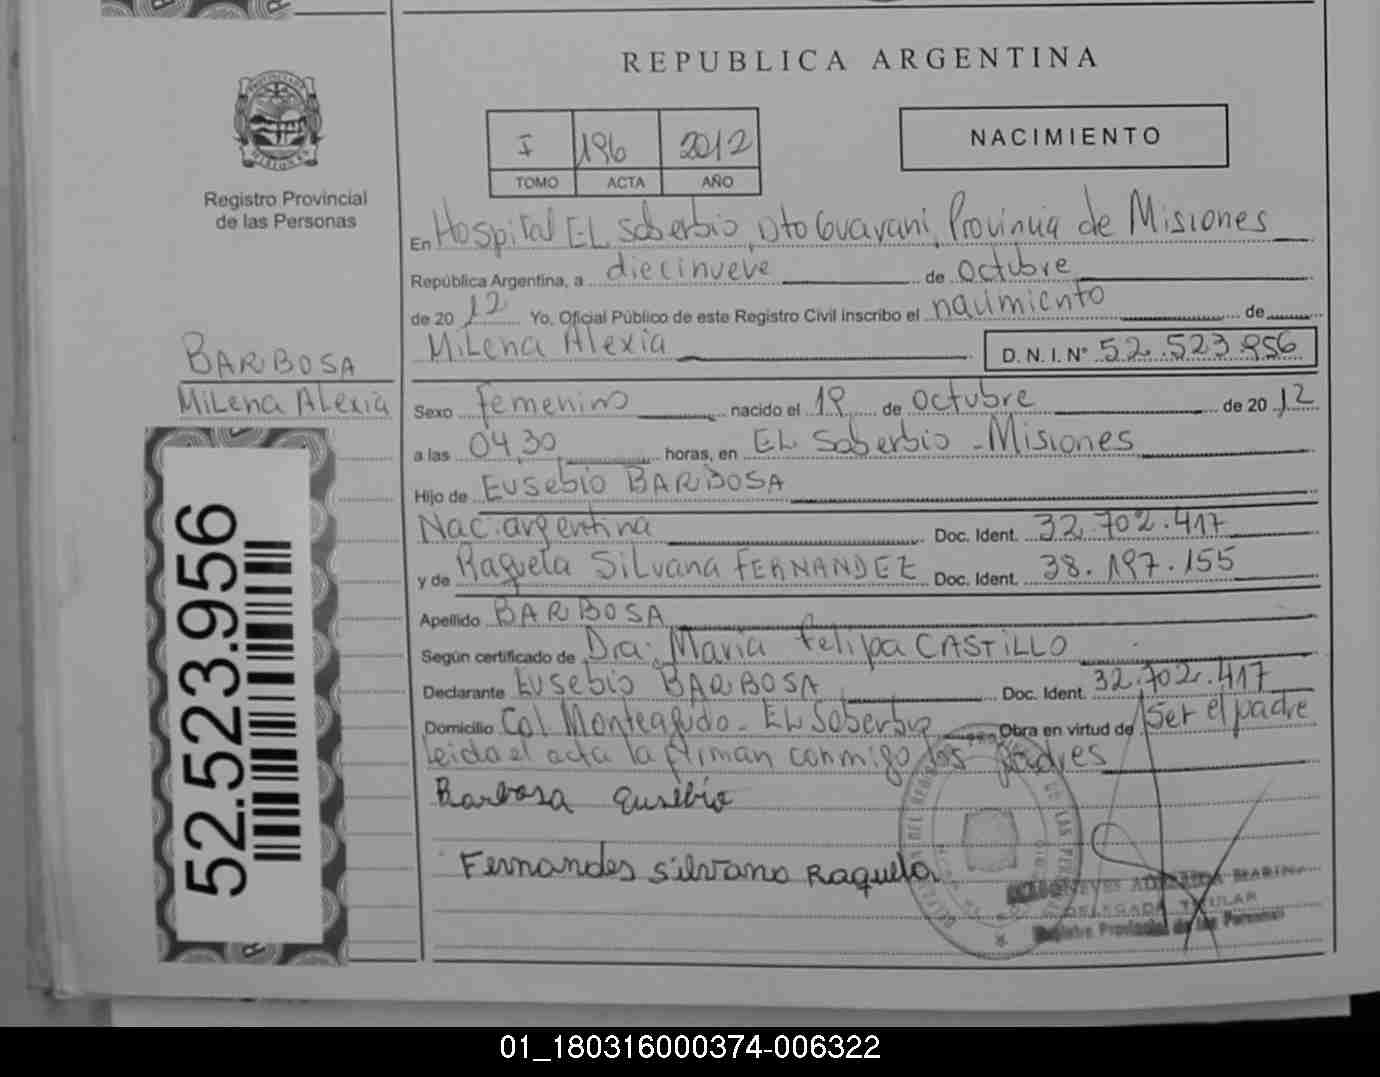 REPUBLICA ARGENTINA
I 196 2012
TOMO ACTA AÑO
NACIMIENTO
Registro Provincial
de las Personas
En Hospital EL Soberbio, Dto Guarani, Provincia de Misiones
República Argentina, a diecinueve de octubre
de 2012 Yo, Oficial Público de este Registro Civil inscribo el nacimiento de
Milena Alexia D.N.I.Nº 52.523.956
BARBOSA
Milena Alexia
Sexo femenino nacido el 19 de octubre de 2012
a las 04,30 horas, en EL Soberbio - Misiones
Hijo de Eusebio BARBOSA
Nac. argentina Doc. Ident. 32.702.417
y de Raquela Silvana FERNANDEZ Doc. Ident. 38.197.155
Apellido BARBOSA
Según certificado de Dra. Maria Felipa CASTILLO
Declarante Eusebio BARBOSA Doc. Ident. 32.702.417
Domicilio Col. Monteagudo - EL Soberbio Obra en virtud de Ser el padre
leida el acta la firman conmigo los padres
Barbosa Eusebio
Fernandes Silvana Raquela
DELEGADA TITULAR
Registro Provincial de las Personas
52.523.956
01_180316000374-006322